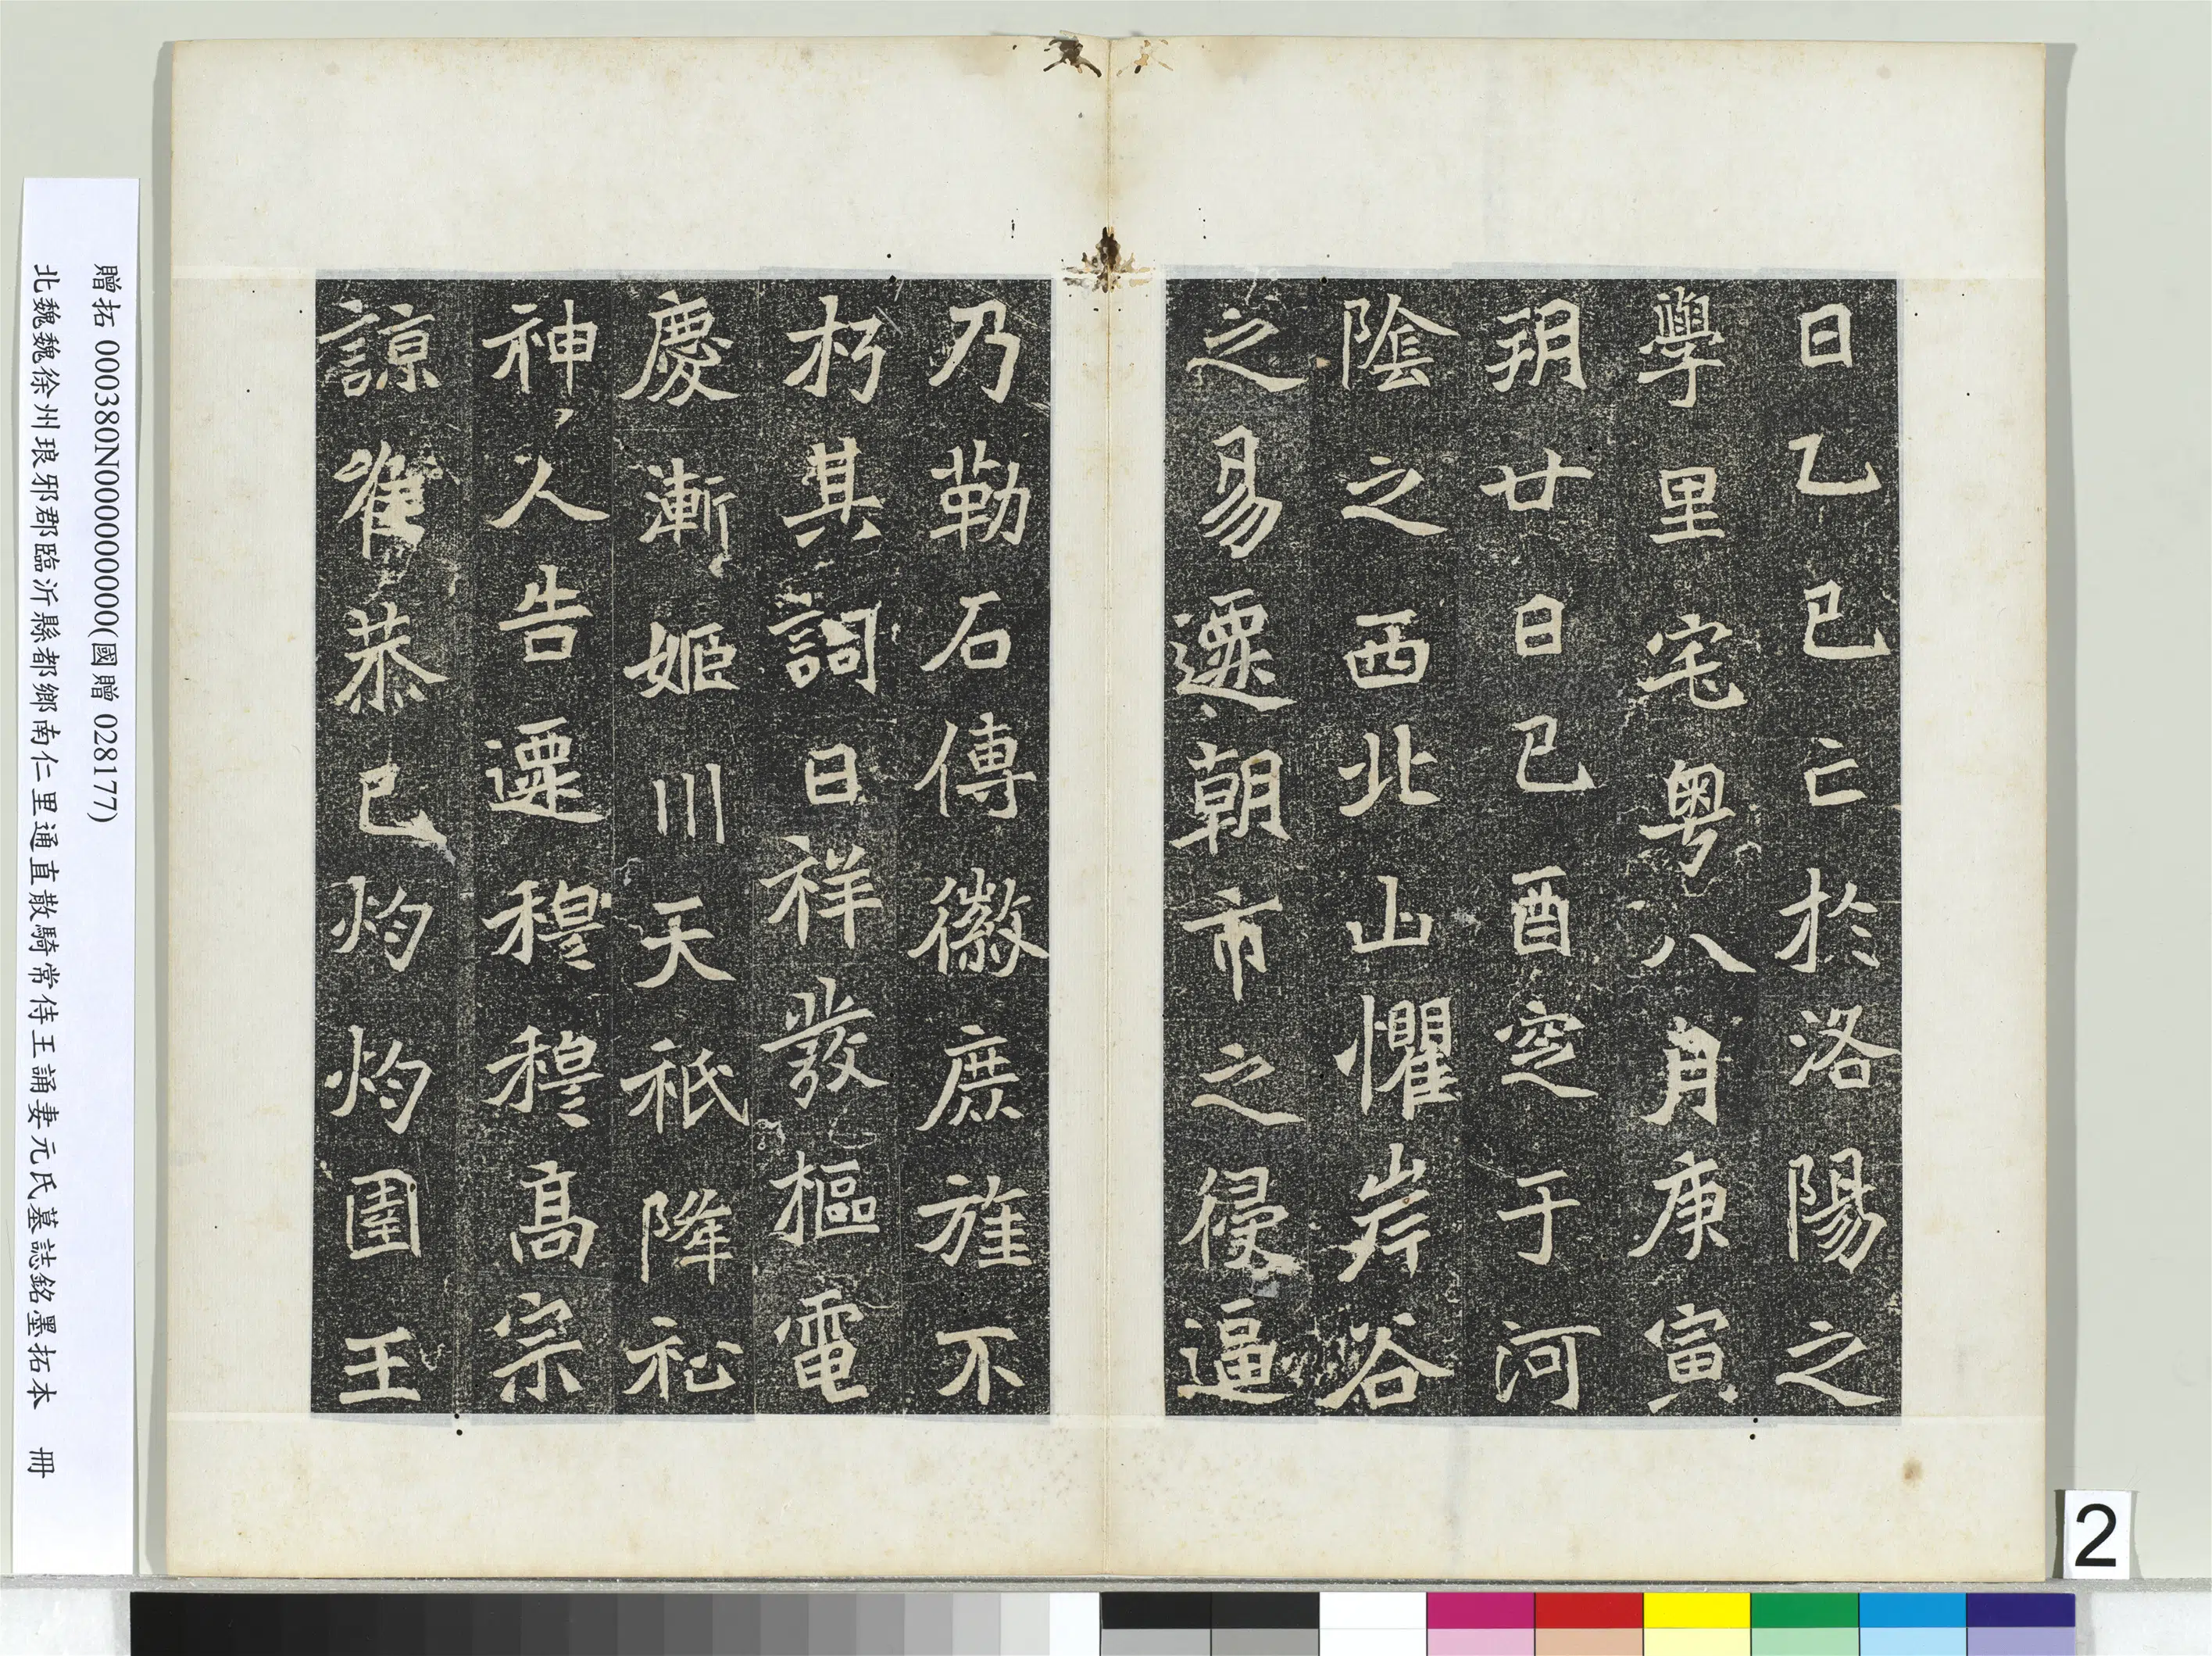 日乙巳亡於洛陽之
學里宅粤八月庚寅
玥廿日己酉窆于河
陰之西北山懼岸谷
之易遷朝市之侵逼
乃勒石傳徽庶旌不
朽其詞曰祥發樞電
慶漸姬川天祇降祉
神人告遷穆穆高宗
諒唯恭己灼灼圉王
贈拓 000380N000000000(國贈 028177)
北魏魏徐州琅邪郡臨沂縣都鄉南仁里通直散騎常侍王誦妻元氏墓誌銘墨拓本 冊
2